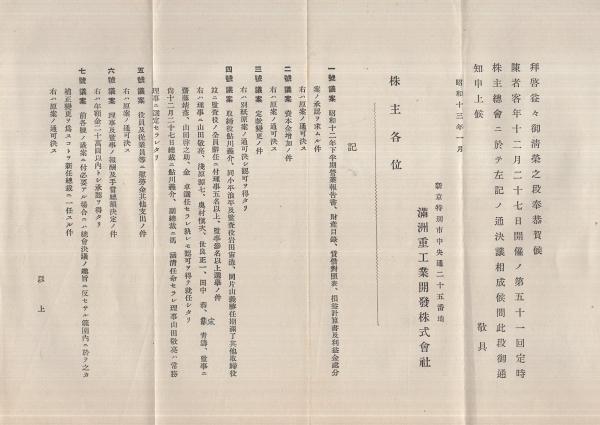 拜啓益々御淸榮之段奉恭賀候
陳者客年十二月二十七日開催ノ第五十一回定時
株主總會ニ於テ左記ノ通決議相成候間此段御通
知申上候
敬具
昭和十三年一月
新京特別市中央通二十五番地
滿洲重工業開發株式會社
株主各位
記
一號議案 昭和十二年下半期營業報告書、財產目錄、貸借對照表、損益計算書及利益金處分
案ノ承認ヲ求ムル件
右ハ原案ノ通可決ス
二號議案 資本金增加ノ件
右ハ原案ノ通可決ス
三號議案 定款變更ノ件
右ハ別紙原案ノ通可決シ認可ヲ得タリ
四號議案 取締役鮎川義介、同小平浪平及監査役岩田宙造、同片山義勝任期滿了其他取締役
竝ニ監査役ノ全員辭任ニ付理事五名以上、監事參名以上選擧ノ件
右ハ理事ニ山田敬亮、淺原源七、奧村愼次、世良正一、田中恭、靑濤、監事ニ
齋藤靖彥、山田啓之助、金卓議任セラレ孰レモ認可ヲ得テ就任セリ
尙十二月二十七日總裁ニ鮎川義介、副總裁ニ滿淸任命セラレ理事山田敬亮ハ常務
理事ニ選定セラレタリ
五號議案 役員及從業員等ニ慰勞金其他支出ノ件
右ハ原案ノ通可決ス
六號議案 理事及監事ノ報酬及手當總額決定ノ件
右ハ年額金二十萬圓以內トシ承認ヲ得タリ
七號議案 前各號ノ議案ニ付必要アル場合ニハ總會決議ノ趣旨ニ反セサル範圍內ニ於テ之カ
補正變更ヲ爲スコトヲ新任總裁ニ一任スル件
右ハ原案ノ通可決ス
以上